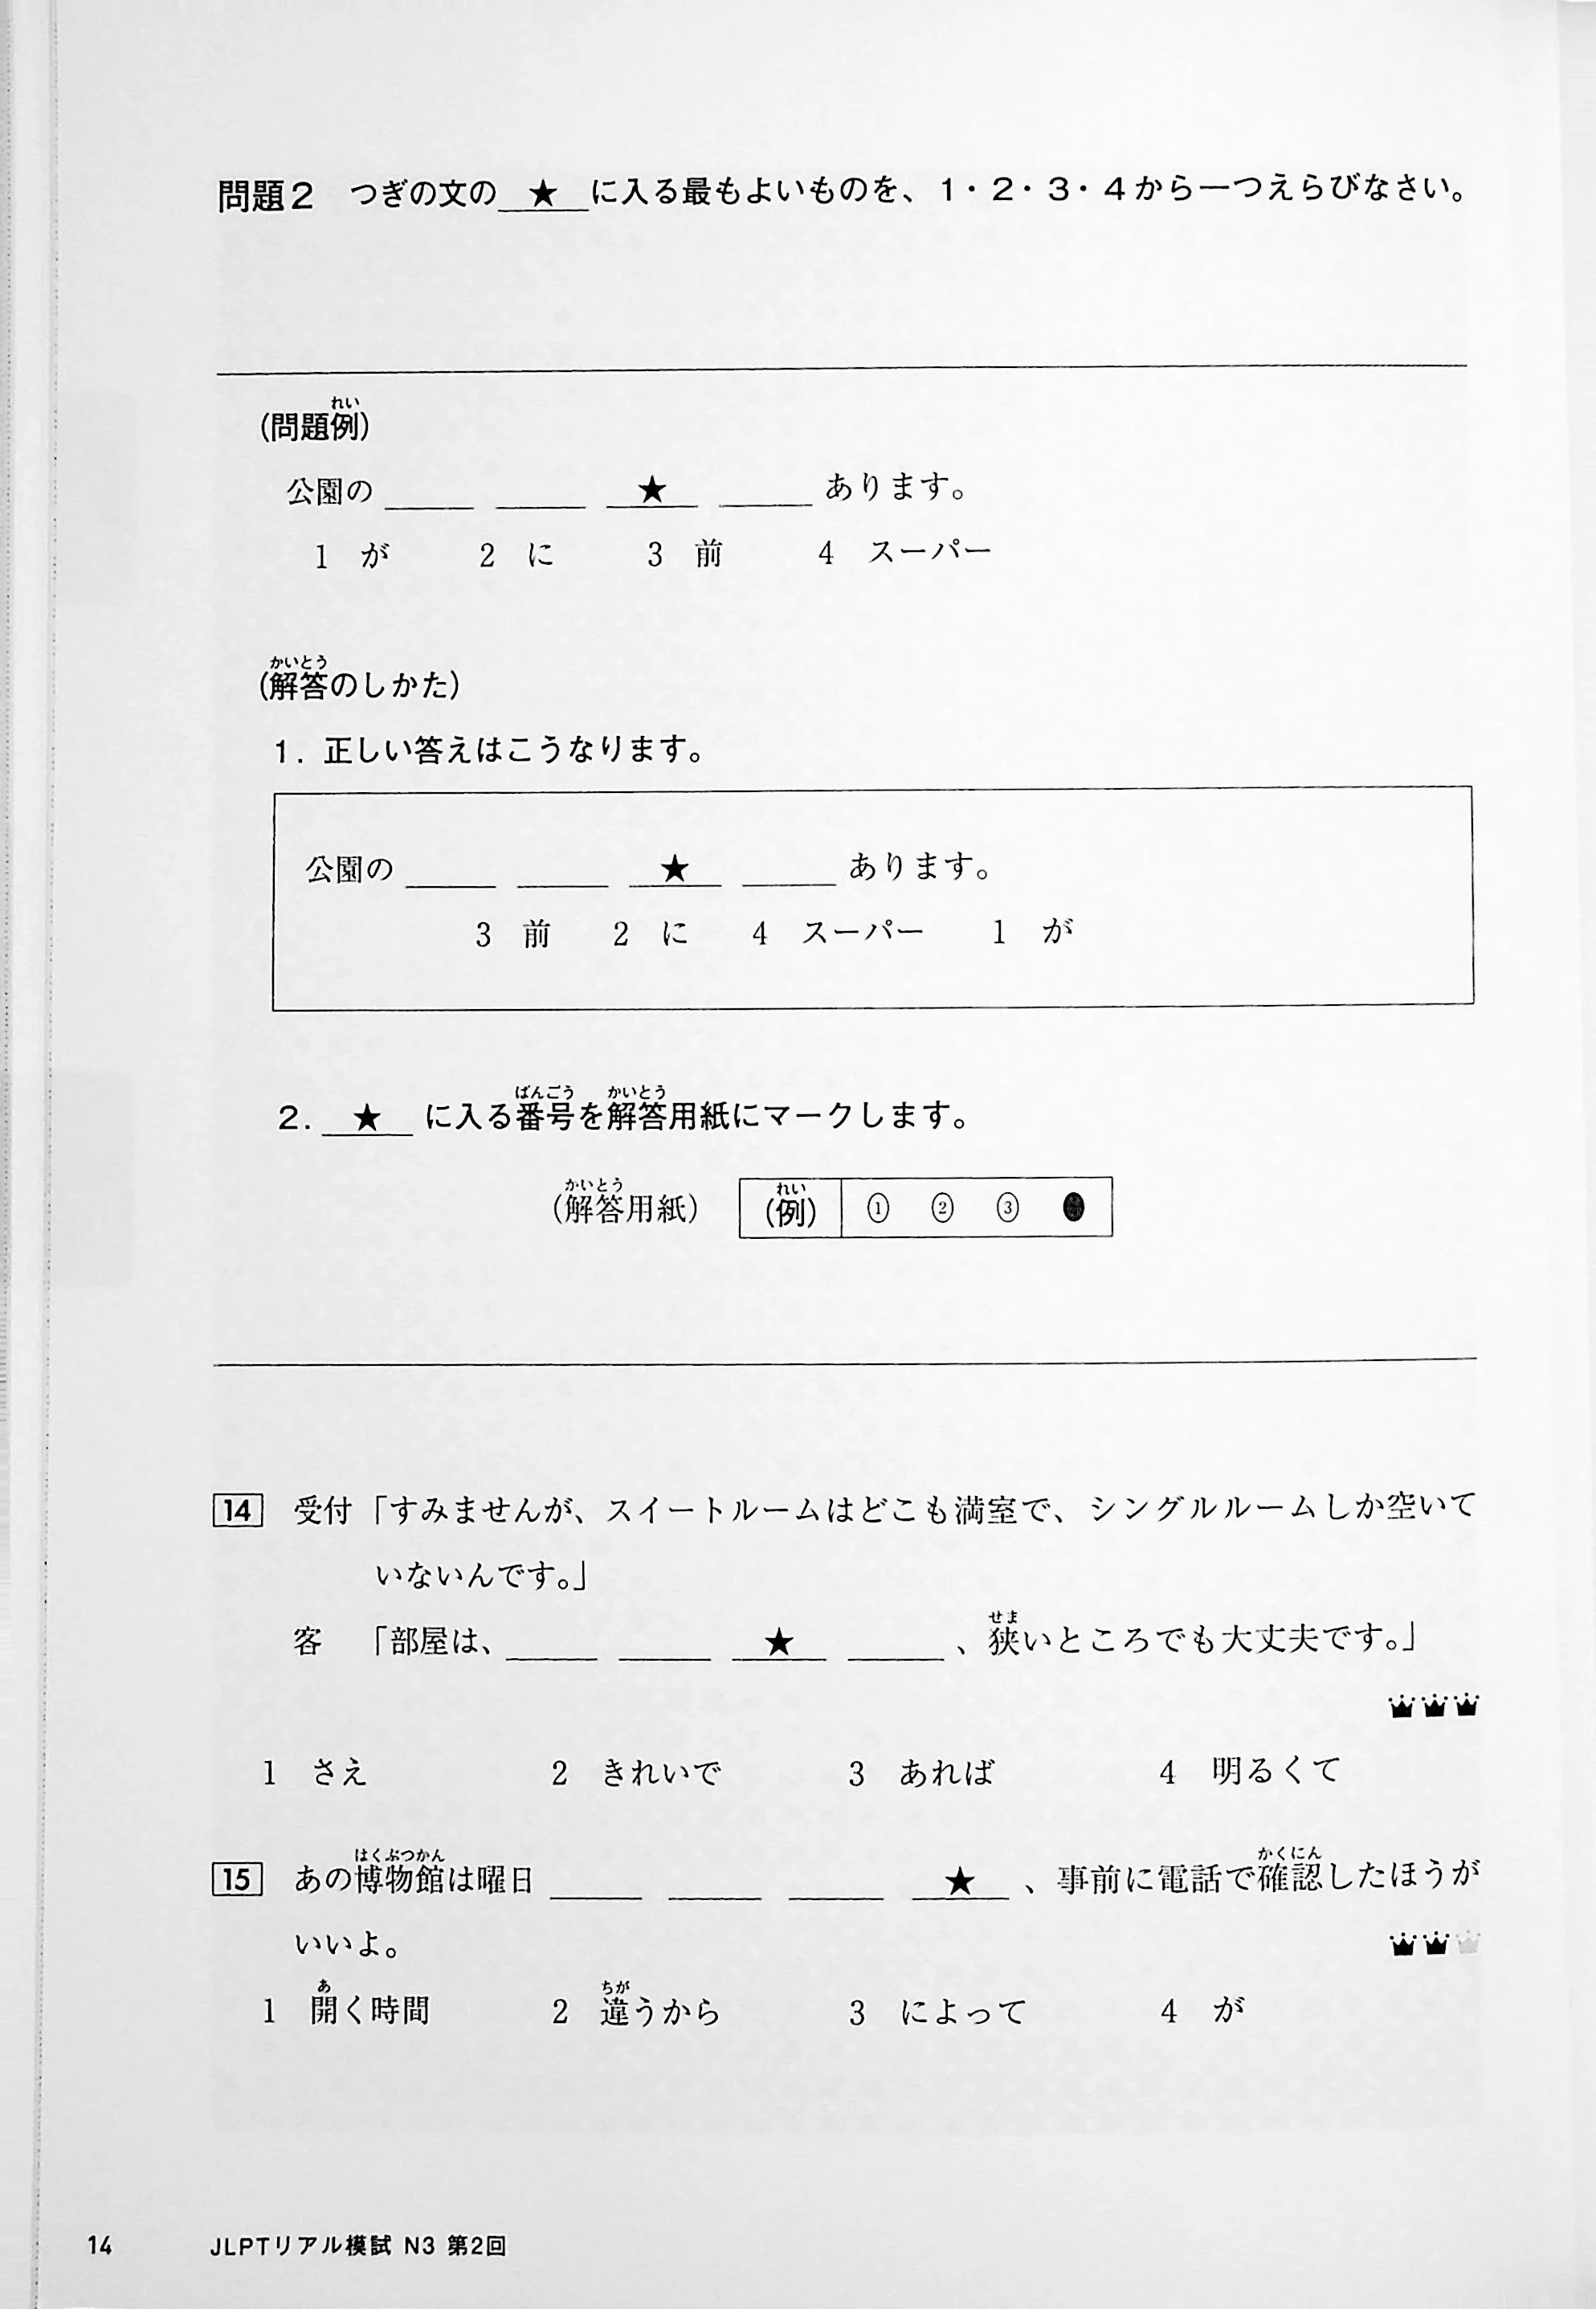 問題2 つぎの文の ★ に入る最もよいものを、1・2・3・4から一つえらびなさい。
れい
(問題例)
公園の ____ ____ ★ ____ あります。
1 が 2 に 3 前 4 スーパー
かいとう
(解答のしかた)
1. 正しい答えはこうなります。
公園の ____ ____ ★ ____ あります。
3 前 2 に 4 スーパー 1 が
ばんごう かいとう
2. ★ に入る番号を解答用紙にマークします。
かいとう れい
(解答用紙) (例) ① ② ③ ●
14 受付「すみませんが、スイートルームはどこも満室で、シングルルームしか空いて
いないんです。」
せま
客 「部屋は、____ ____ ★ ____、狭いところでも大丈夫です。」
1 さえ 2 きれいで 3 あれば 4 明るくて
はくぶつかん かくにん
15 あの博物館は曜日 ____ ____ ____ ★ 、事前に電話で確認したほうが
いいよ。
あ ちが
1 開く時間 2 違うから 3 によって 4 が
14 JLPTリアル模試 N3 第2回